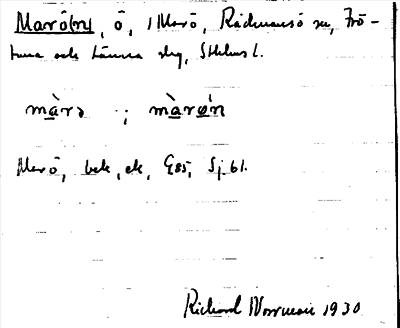 Marö(n), ö, i Marö, Rådmansö sn, Frö-
tuna och Länna slg, Sthlms l.
màrə ; màrøn
Marö, bek, ek, Sj. 61.
Richard Norrman 1930